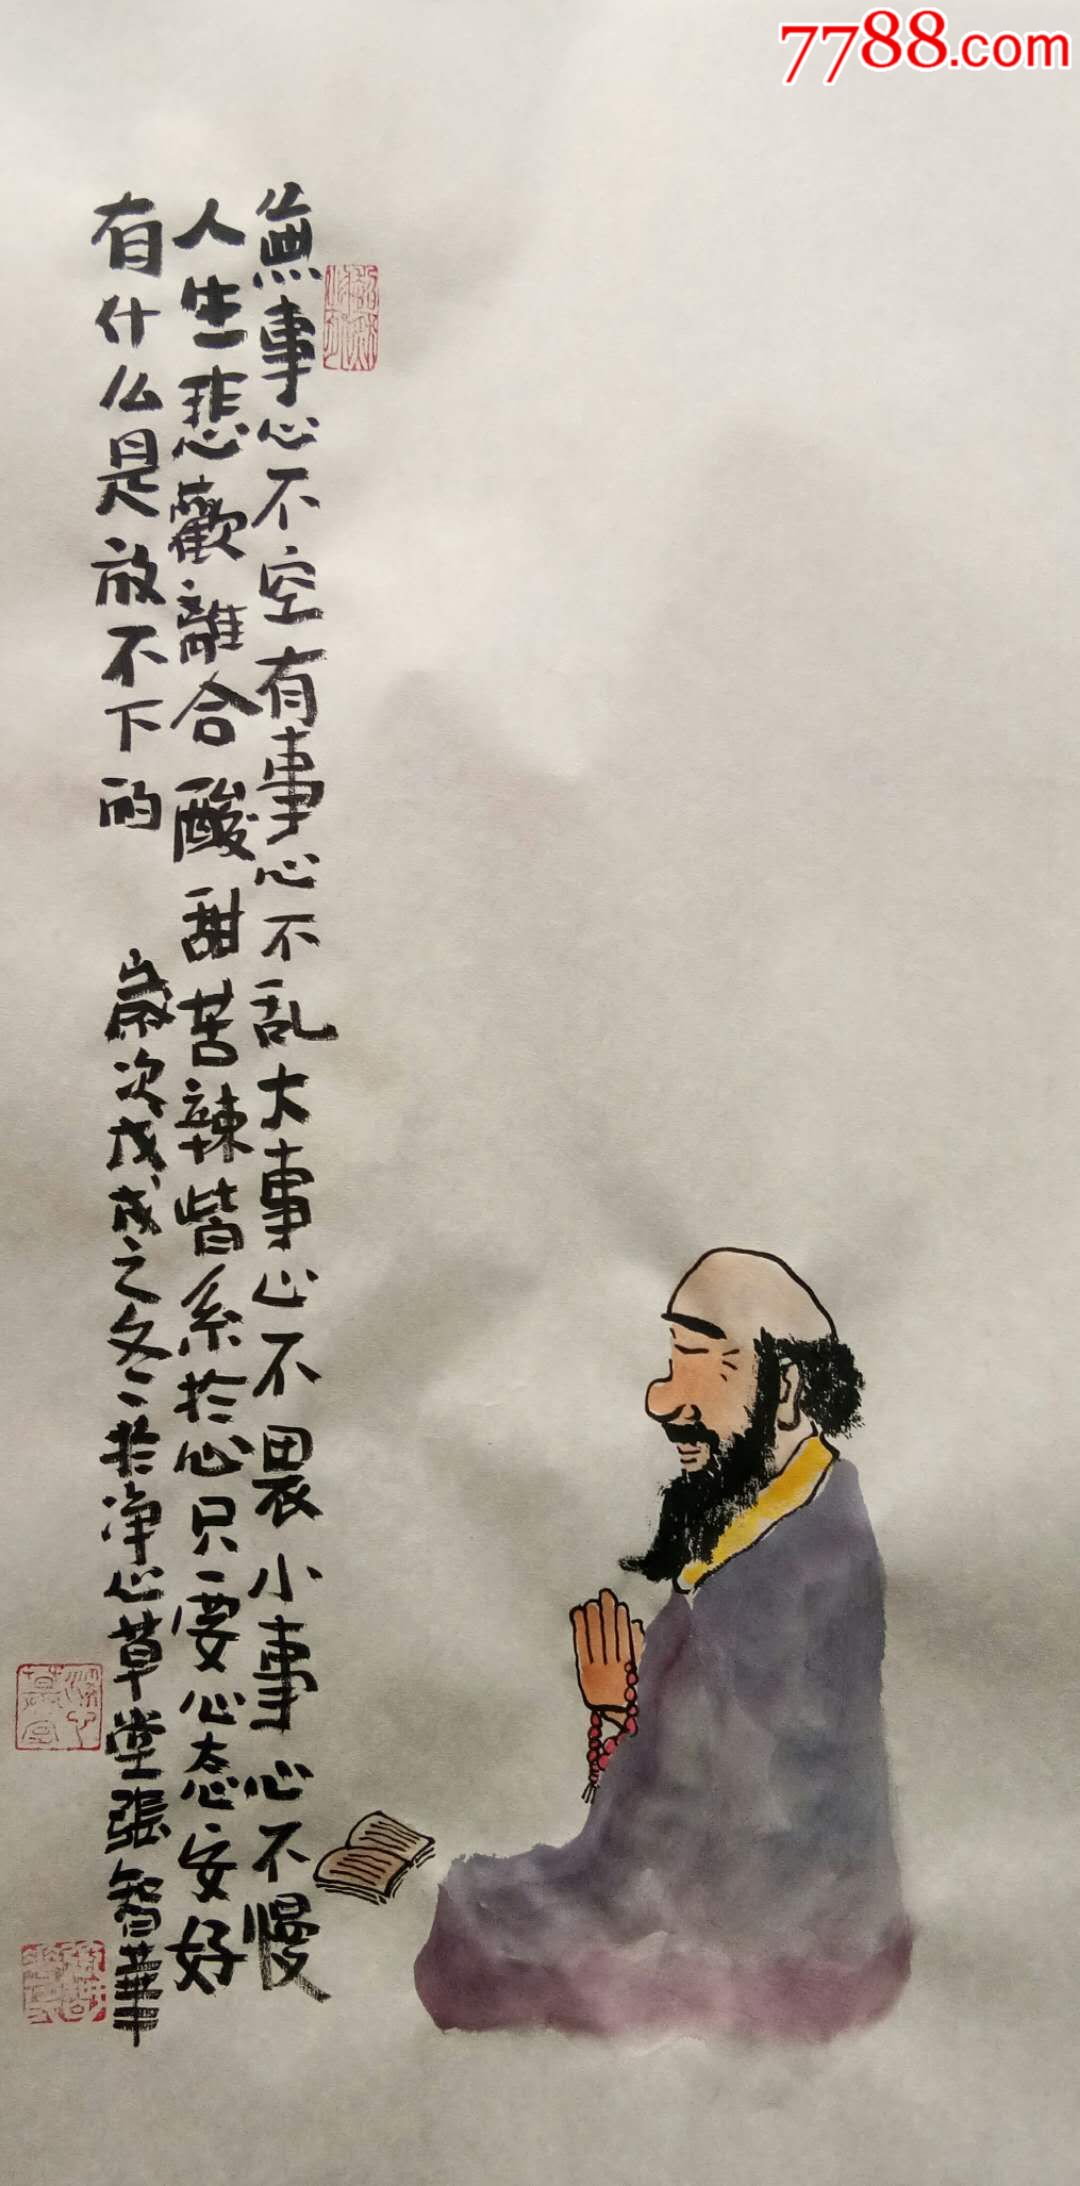 7788.com
無事心不空有事心不乱大事心不畏小事心不慢
人生悲歡離合酸甜苦辣皆系於心只要心态安好
有什么是放不下的
歲次戊戌之冬二於净心草堂張智華